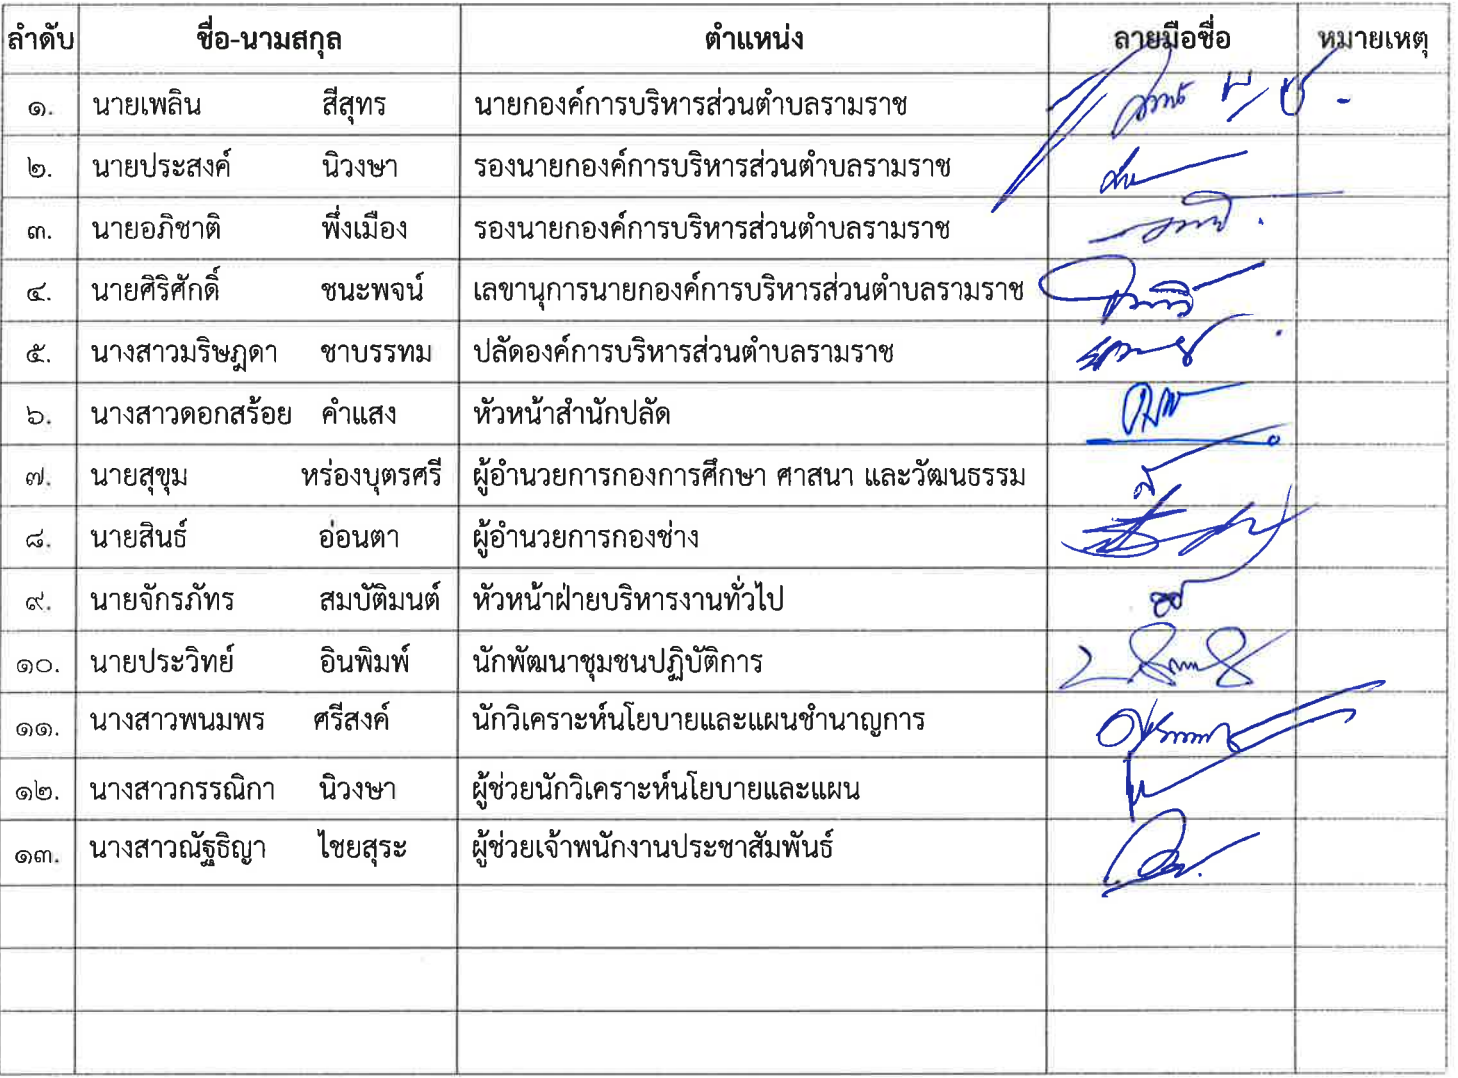 ลำดับ ชื่อ-นามสกุล ตำแหน่ง ลายมือชื่อ หมายเหตุ
๑. นายเพลิน สีสุทร นายกองค์การบริหารส่วนตำบลรามราช
๒. นายประสงค์ นิวงษา รองนายกองค์การบริหารส่วนตำบลรามราช
๓. นายอภิชาติ พึ่งเมือง รองนายกองค์การบริหารส่วนตำบลรามราช
๔. นายศิริศักดิ์ ชนะพจน์ เลขานุการนายกองค์การบริหารส่วนตำบลรามราช
๕. นางสาวมริษฎดา ชาบรรทม ปลัดองค์การบริหารส่วนตำบลรามราช
๖. นางสาวดอกสร้อย คำแสง หัวหน้าสำนักปลัด
๗. นายสุขุม หร่องบุตรศรี ผู้อำนวยการกองการศึกษา ศาสนา และวัฒนธรรม
๘. นายสินธ์ อ่อนตา ผู้อำนวยการกองช่าง
๙. นายจักรภัทร สมบัติมนต์ หัวหน้าฝ่ายบริหารงานทั่วไป
๑๐. นายประวิทย์ อินพิมพ์ นักพัฒนาชุมชนปฏิบัติการ
๑๑. นางสาวพนมพร ศรีสงค์ นักวิเคราะห์นโยบายและแผนชำนาญการ
๑๒. นางสาวกรรณิกา นิวงษา ผู้ช่วยนักวิเคราะห์นโยบายและแผน
๑๓. นางสาวณัฐธิญา ไชยสุระ ผู้ช่วยเจ้าพนักงานประชาสัมพันธ์